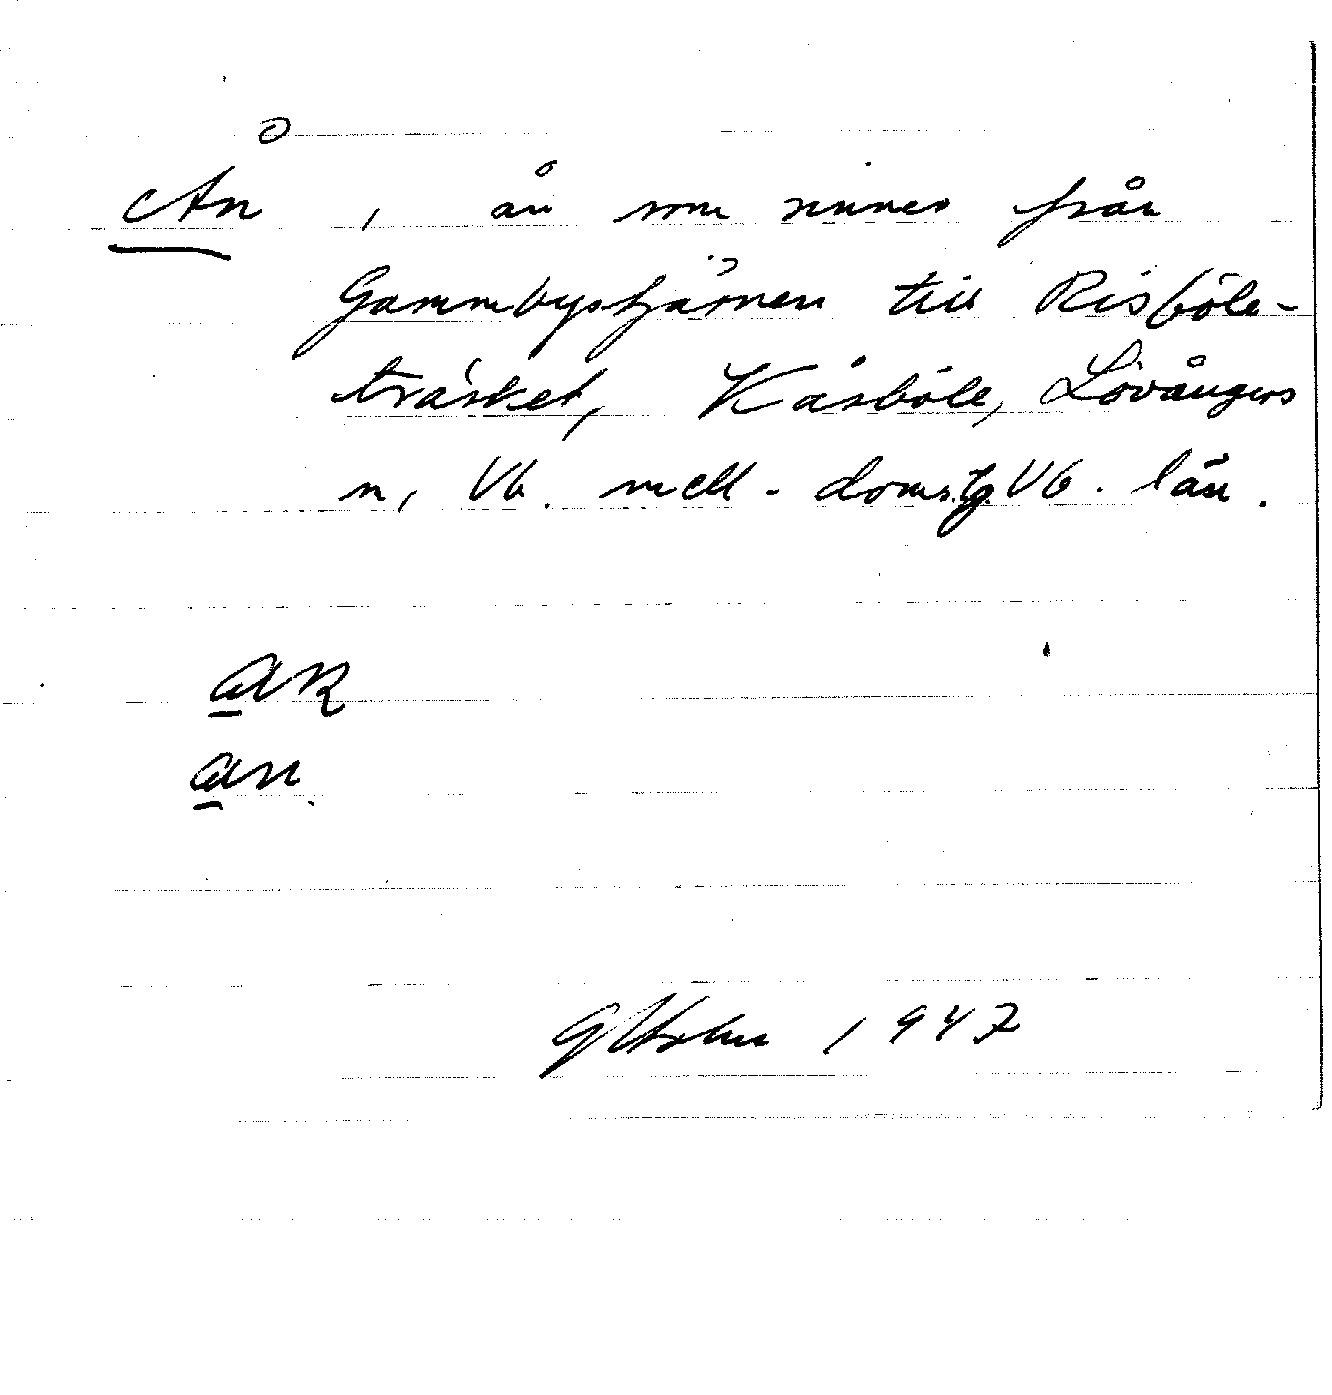 Ån, ån som rinner från
Gammbystjärnen till Risböle-
träsket, Kåsböle, Lövångers
sn, Vb. mell. doms.g Vb. län.
an
1947